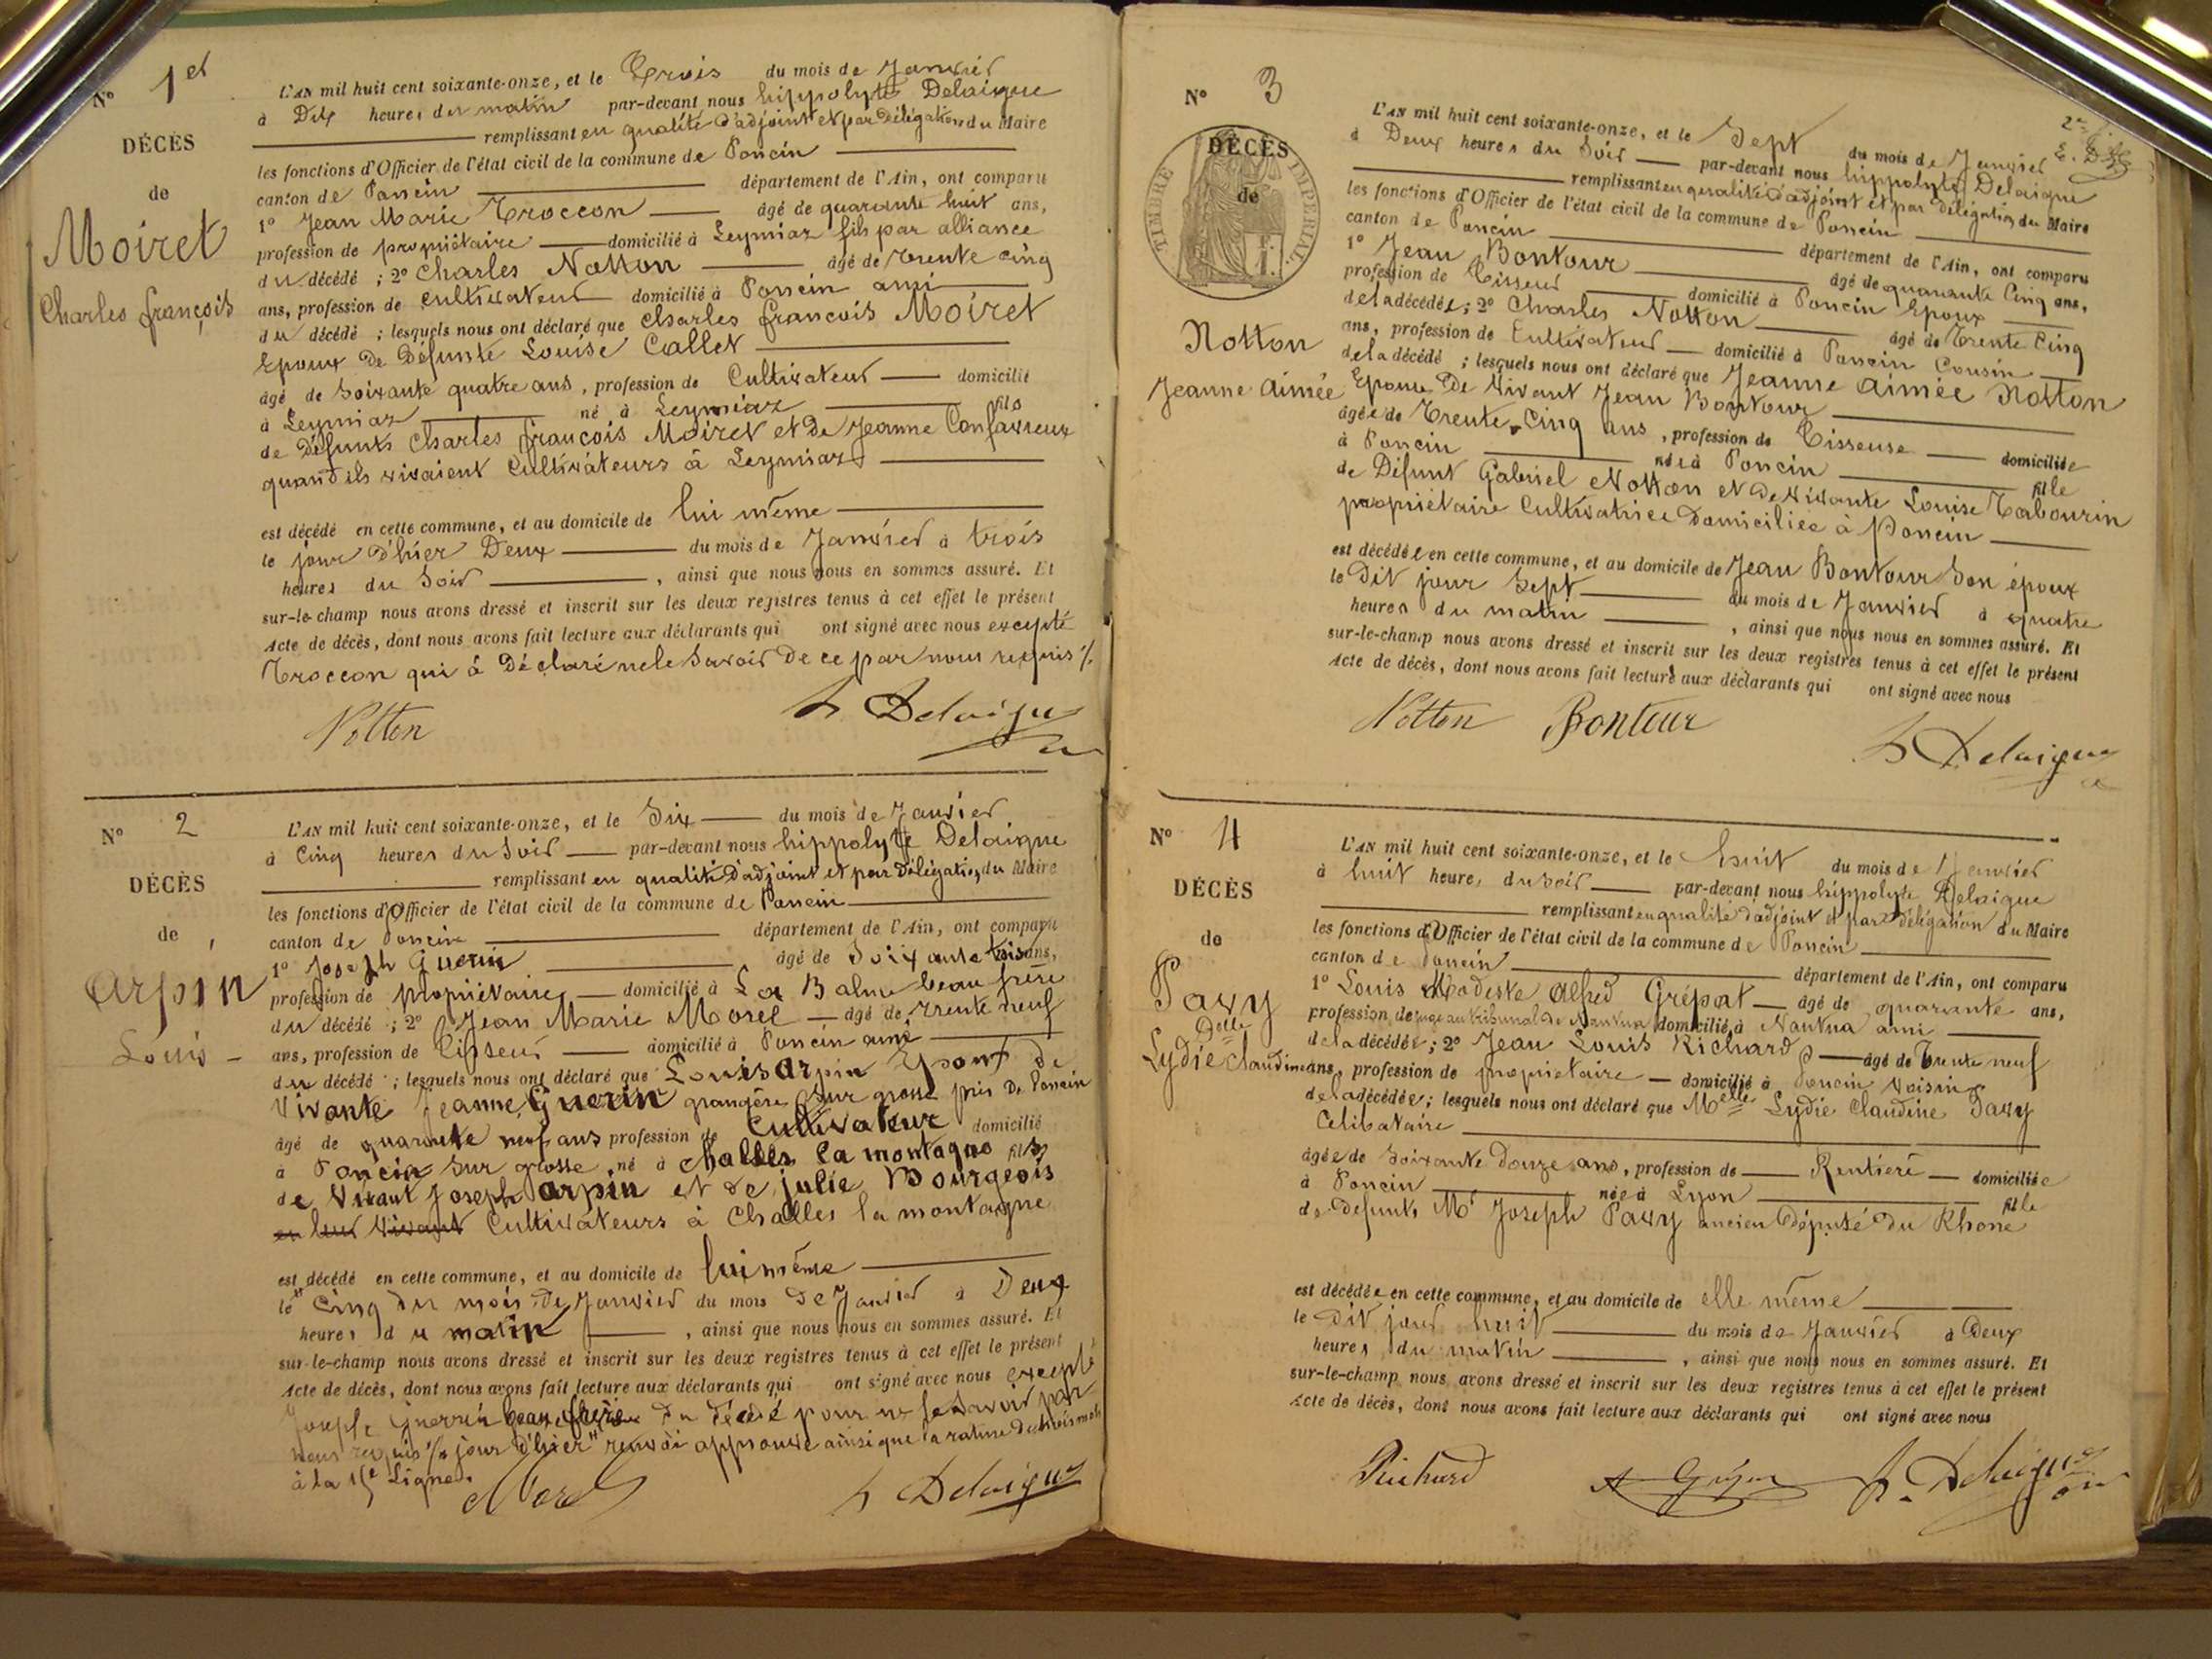 N° 1er
DÉCÈS
de
Moiret
Charles françois
L'AN mil huit cent soixante-onze, et le Trois du mois de Janvier
à Dix heures du matin par-devant nous hippolyte Delaigue
remplissant en qualité d'adjoint et par Délégation du Maire
les fonctions d'Officier de l'état civil de la commune de Poncin
canton de Poncin département de l'Ain, ont comparu
1° Jean Marie Troccon âgé de quarante huit ans,
profession de propriétaire domicilié à Leymiaz fils par alliance
du décédé ; 2° Charles Notton âgé de Trente cinq
ans, profession de cultivateur domicilié à Poncin ami
du décédé ; lesquels nous ont déclaré que Charles françois Moiret
Epoux De Défunte Louise Collet
âgé de Soixante quatre ans, profession de Cultivateur domicilié
à Leymiaz né à Leymiaz fils
de Défunts Charles françois Moiret et de Jeanne Confavreux
quand ils vivaient Cultivateurs à Leymiaz
est décédé en cette commune, et au domicile de lui même
le jour d'hier Deux du mois de Janvier à trois
heures du Soir , ainsi que nous nous en sommes assuré. Et
sur-le-champ nous avons dressé et inscrit sur les deux registres tenus à cet effet le présent
Acte de décès, dont nous avons fait lecture aux déclarants qui ont signé avec nous excepté
Troccon qui à Déclaré ne le Savoir De ce par nous requis /.
Notton h Delaigue
N° 2
DÉCÈS
de
Arpin
Louis
L'AN mil huit cent soixante-onze, et le Six du mois de Janvier
à Cinq heures du Soir par-devant nous hippolyte Delaigue
remplissant en qualité d'adjoint et par Délégation du Maire
les fonctions d'Officier de l'état civil de la commune de Poncin
canton de Poncin département de l'Ain, ont comparu
1° Joseph Guerin âgé de Soixante trois ans,
profession de propriétaire domicilié à La Balme beau frère
du décédé ; 2° Jean Marie Morel âgé de Trente neuf
ans, profession de Tisseur domicilié à Poncin ami
du décédé ; lesquels nous ont déclaré que Louis Arpin Epoux de
Vivante Jeanne Guerin grangère sur grosse près De Poncin
âgé de quarante neuf ans profession de Cultivateur domicilié
à Poncin Sur grosse né à Challes la montagne fils
de Vivant Joseph Arpin et de julie Bourgeois
en leur vivant Cultivateurs à Challes la montagne
est décédé en cette commune, et au domicile de lui même
le " Cinq du mois de Janvier du mois de Janvier à Deux
heures du matin , ainsi que nous nous en sommes assuré. Et
sur-le-champ nous avons dressé et inscrit sur les deux registres tenus à cet effet le présent
Acte de décès, dont nous avons fait lecture aux déclarants qui ont signé avec nous excepté
Joseph Guerrin beau frère du décédé pour ne le savoir par
nous requis /. " jour d'hier " renvoi approuvé ainsi que la rature de trois mots
à la 15e Ligne.
Morel h Delaigue
N° 3
DÉCÈS
de
TIMBRE IMPÉRIAL
Notton
Jeanne Aimée
L'AN mil huit cent soixante-onze, et le Sept du mois de Janvier
à Deux heures du Soir par-devant nous hippolyte Delaigue
remplissant en qualité d'adjoint et par délégation du Maire
les fonctions d'Officier de l'état civil de la commune de Poncin
canton de Poncin département de l'Ain, ont comparu
1° Jean Bontour âgé de quarante Cinq ans,
profession de Tisseur domicilié à Poncin Epoux
de la décédée ; 2° Charles Notton âgé de Trente Cinq
ans, profession de Cultivateur domicilié à Poncin Cousin
de la décédé ; lesquels nous ont déclaré que Jeanne Aimée Notton
Epouse De Vivant Jean Bontour
âgée de Trente Cinq ans, profession de Tisseuse domiciliée
à Poncin née à Poncin fille
de Défunt Gabriel Notton et de vivante Louise Tabourin
propriétaire Cultivatrice Domiciliée à Poncin
est décédée en cette commune, et au domicile de Jean Bontour Son époux
le Dit jour Sept du mois de Janvier à quatre
heures du matin , ainsi que nous nous en sommes assuré. Et
sur-le-champ nous avons dressé et inscrit sur les deux registres tenus à cet effet le présent
Acte de décès, dont nous avons fait lecture aux déclarants qui ont signé avec nous
Notton Bontour h Delaigue
N° 4
DÉCÈS
de
Pavy
Delle
Lydie Claudine
L'AN mil huit cent soixante-onze, et le huit du mois de Janvier
à huit heures du soir par-devant nous hippolyte Delaigue
remplissant en qualité d'adjoint et par délégation du Maire
les fonctions d'Officier de l'état civil de la commune de Poncin
canton de Poncin département de l'Ain, ont comparu
1° Louis Modeste Alfred Grépat âgé de quarante ans,
profession de juge au tribunal de Nantua domicilié à Nantua ami
de la décédée ; 2° Jean Louis Richard âgé de Trente neuf
ans, profession de propriétaire domicilié à Poncin voisin
de la décédée ; lesquels nous ont déclaré que Melle Lydie Claudine Pavy
Célibataire
âgée de Soixante Douze ans, profession de Rentière domiciliée
à Poncin née à Lyon fille
de Defunts Mr Joseph Pavy ancien Député du Rhone
est décédée en cette commune, et au domicile de elle même
le Dit jour huit du mois de Janvier à Deux
heures du matin , ainsi que nous nous en sommes assuré. Et
sur-le-champ nous avons dressé et inscrit sur les deux registres tenus à cet effet le présent
Acte de décès, dont nous avons fait lecture aux déclarants qui ont signé avec nous
Richard h. Delaigue